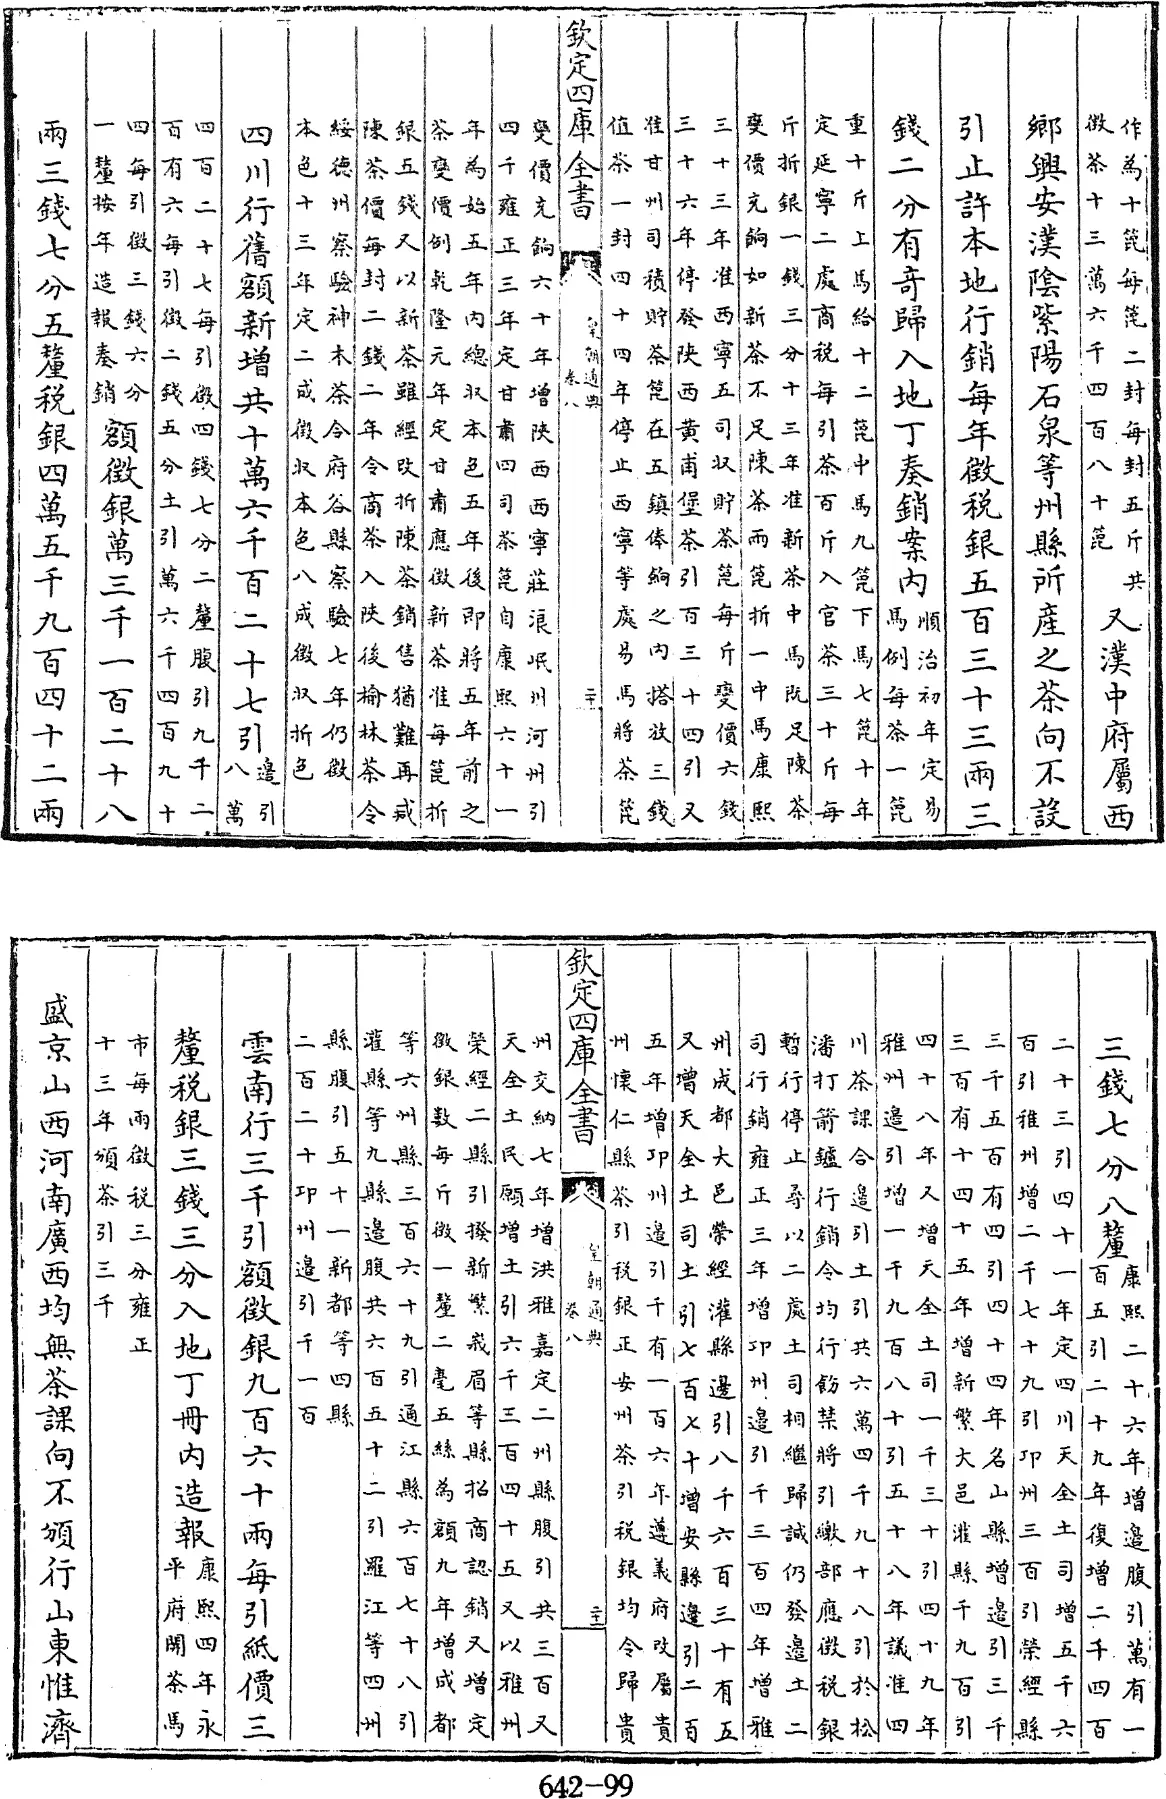 作為十篦每篦二封每封五斤共
徴茶十三萬六千四百八十篦
又漢中府屬西
鄉興安漢陰紫陽石泉等州縣所産之茶向不設
引止許本地行銷每年徴税銀五百三十三兩三
錢二分有竒歸入地丁奏銷案内
順治初年定易
馬例每茶一篦
重十斤上馬給十二篦中馬九篦下馬七篦十年
定延寧二處商税每引茶百斤入官茶三十斤每
斤折銀一錢三分十三年准新茶中馬既足陳茶
變價充餉如新茶不足陳茶兩篦折一中馬康熙
三十三年准西寧五司収貯茶篦每斤變價六錢
三十六年停發陜西黄甫堡茶引百三十四引又
准甘州司積貯茶篦在五鎮俸餉之内搭放三錢
值茶一封四十四年停止西寧等處易馬將茶篦
欽定四庫全書
皇朝通典
卷八
二十
變價充餉六十年增陜西西寧莊浪岷州河州引
四千雍正三年定甘肅四司茶篦自康熙六十一
年為始五年内總収本色五年後即將五年前之
茶變價例乾隆元年定甘肅應徴新茶准每篦折
銀五錢又以新茶雖經改折陳茶銷售猶難再減
陳茶價每封二錢二年令商茶入陜後榆林茶令
綏德州察驗神木茶令府谷縣察驗七年仍徴
本色十三年定二成徴収本色八成徴収折色
四川行舊額新增共十萬六千百二十七引
邉引
八萬
四百二十七每引徴四錢七分二釐腹引九千二
百有六每引徴二錢五分土引萬六千四百九十
四每引徴三錢六分
一釐按年造報奏銷
額徴銀萬三千一百二十八
兩三錢七分五釐税銀四萬五千九百四十二兩
三錢七分八釐
康熙二十六年增邉腹引萬有一
百五引二十九年復增二千四百
二十三引四十一年定四川天全土司增五千六
百引雅州增二千七十九引卭州三百引榮經縣
三千五百有四引四十四年名山縣增邉引三千
三百有十四十五年增新繁大邑灌縣千九百引
四十八年又增天全土司一千三十引四十九年
雅州邉引增一千九百八十引五十八年議准四
川茶課合邉引土引共六萬四千九十八引於松
潘打箭鑪行銷令均行飭禁將引繳部應徴税銀
暫行停止尋以二處土司相繼歸誠仍發邉土二
司行銷雍正三年增卭州邉引千三百四年增雅
州成都大邑榮經灌縣邉引八千六百三十有五
又增天全土司土引七百七十增安縣邉引二百
五年增卭州邉引千有一百六年遵義府改屬貴
州懷仁縣茶引税銀正安州茶引税銀均令歸貴
欽定四庫全書
皇朝通典
卷八
二十一
州交納七年增洪雅嘉定二州縣腹引共三百又
天全土民願增土引六千三百四十五又以雅州
榮經二縣引撥新繁峩眉等縣招商認銷又增定
徴銀數每斤徴一釐二毫五絲為額九年增成都
等六州縣三百六十九引通江縣六百七十八引
灌縣等九縣邉腹共六百五十二引羅江等四州
縣腹引五十一新都等四縣
二百二十卭州邉引千一百
雲南行三千引額徴銀九百六十兩每引紙價三
釐税銀三錢三分入地丁冊内造報
康熙四年永
平府開茶馬
市每兩徴税三分雍正
十三年頒茶引三千
盛京山西河南廣西均無茶課向不頒行山東惟濟
642-99